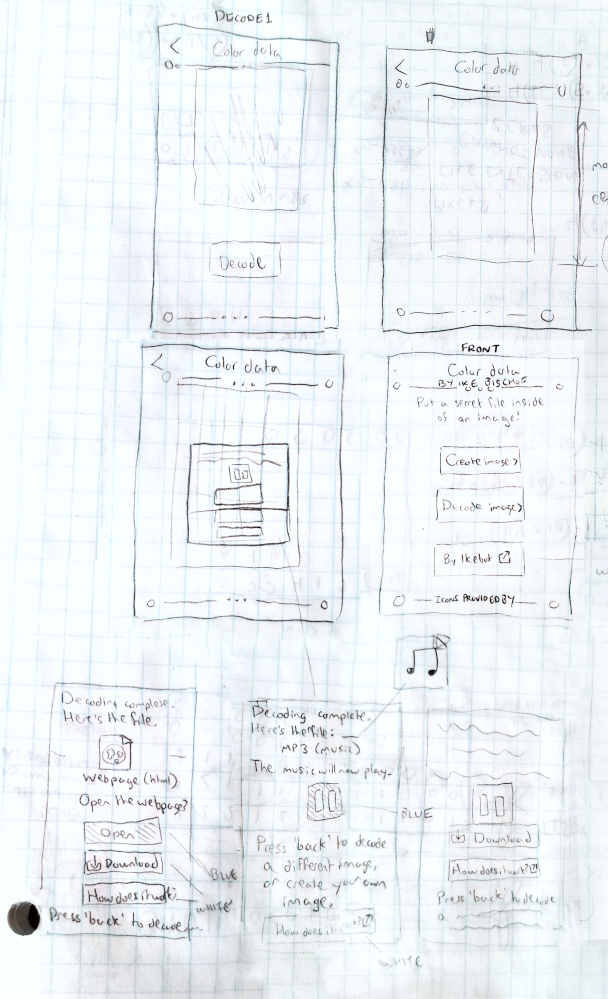 DECODE1
< Color data
Decode
< Color data
< Color data
FRONT
Color data
BY IKE BISCHOF
Put a secret file inside
of an image!
Create image >
Decode image >
By Ikebot
ICONS PROVIDED BY
Decoding complete.
Here's the file.
Webpage (html)
Open the webpage?
Open
Download
How does it work?
Press 'back' to decode
BLUE
WHITE
Decoding complete.
Here's the file:
MP3 (music)
The music will now play.
BLUE
Press 'back' to decode
a different image,
or create your own
image.
How does it
WHITE
Download
How does it work?
Press 'back' to decode
a